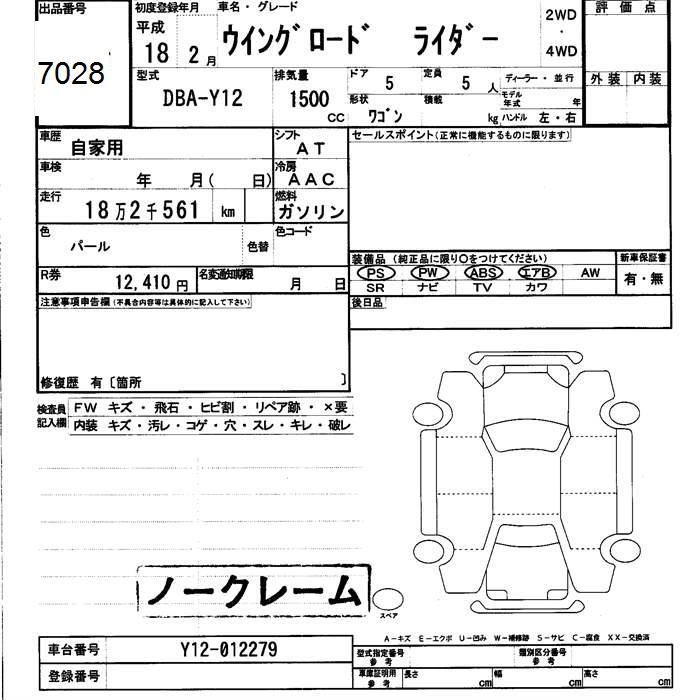 出品番号 初度登録年月 車名・グレード 2WD 評価点
7028 平成 18 2月 ウイングロード ライダー ・ 4WD
型式 DBA-Y12 排気量 1500 CC ドア 5 定員 5 人 ディーラー・並行 外装 内装
形状 ワゴン 積載 kg モデル年式 年 ハンドル 左・右
車歴 自家用 シフト AT セールスポイント(正常に機能するものに限ります)
車検 年 月( 日) 冷房 AAC
走行 18万2千561 km 燃料 ガソリン
色 パール 色替 色コード
装備品(純正品に限り○をつけてください) 新車保証書
R券 12,410円 名変通知期限 月 日 PS PW ABS エアB AW 有・無
SR ナビ TV カワ
注意事項申告欄(不具合内容等は具体的に記入して下さい) 後日品
修復歴 有〔箇所 〕
検査員 FW キズ・飛石・ヒビ割・リペア跡・×要
記入欄 内装 キズ・汚レ・コゲ・穴・スレ・キレ・破レ
ノークレーム
スペア
A-キズ E-エクボ U-凹み W-補修跡 S-サビ C-腐食 XX-交換済
車台番号 Y12-012279 型式指定番号 参考 類別区分番号 参考
登録番号 車庫証明用 参考 長さ cm 幅 cm 高さ cm